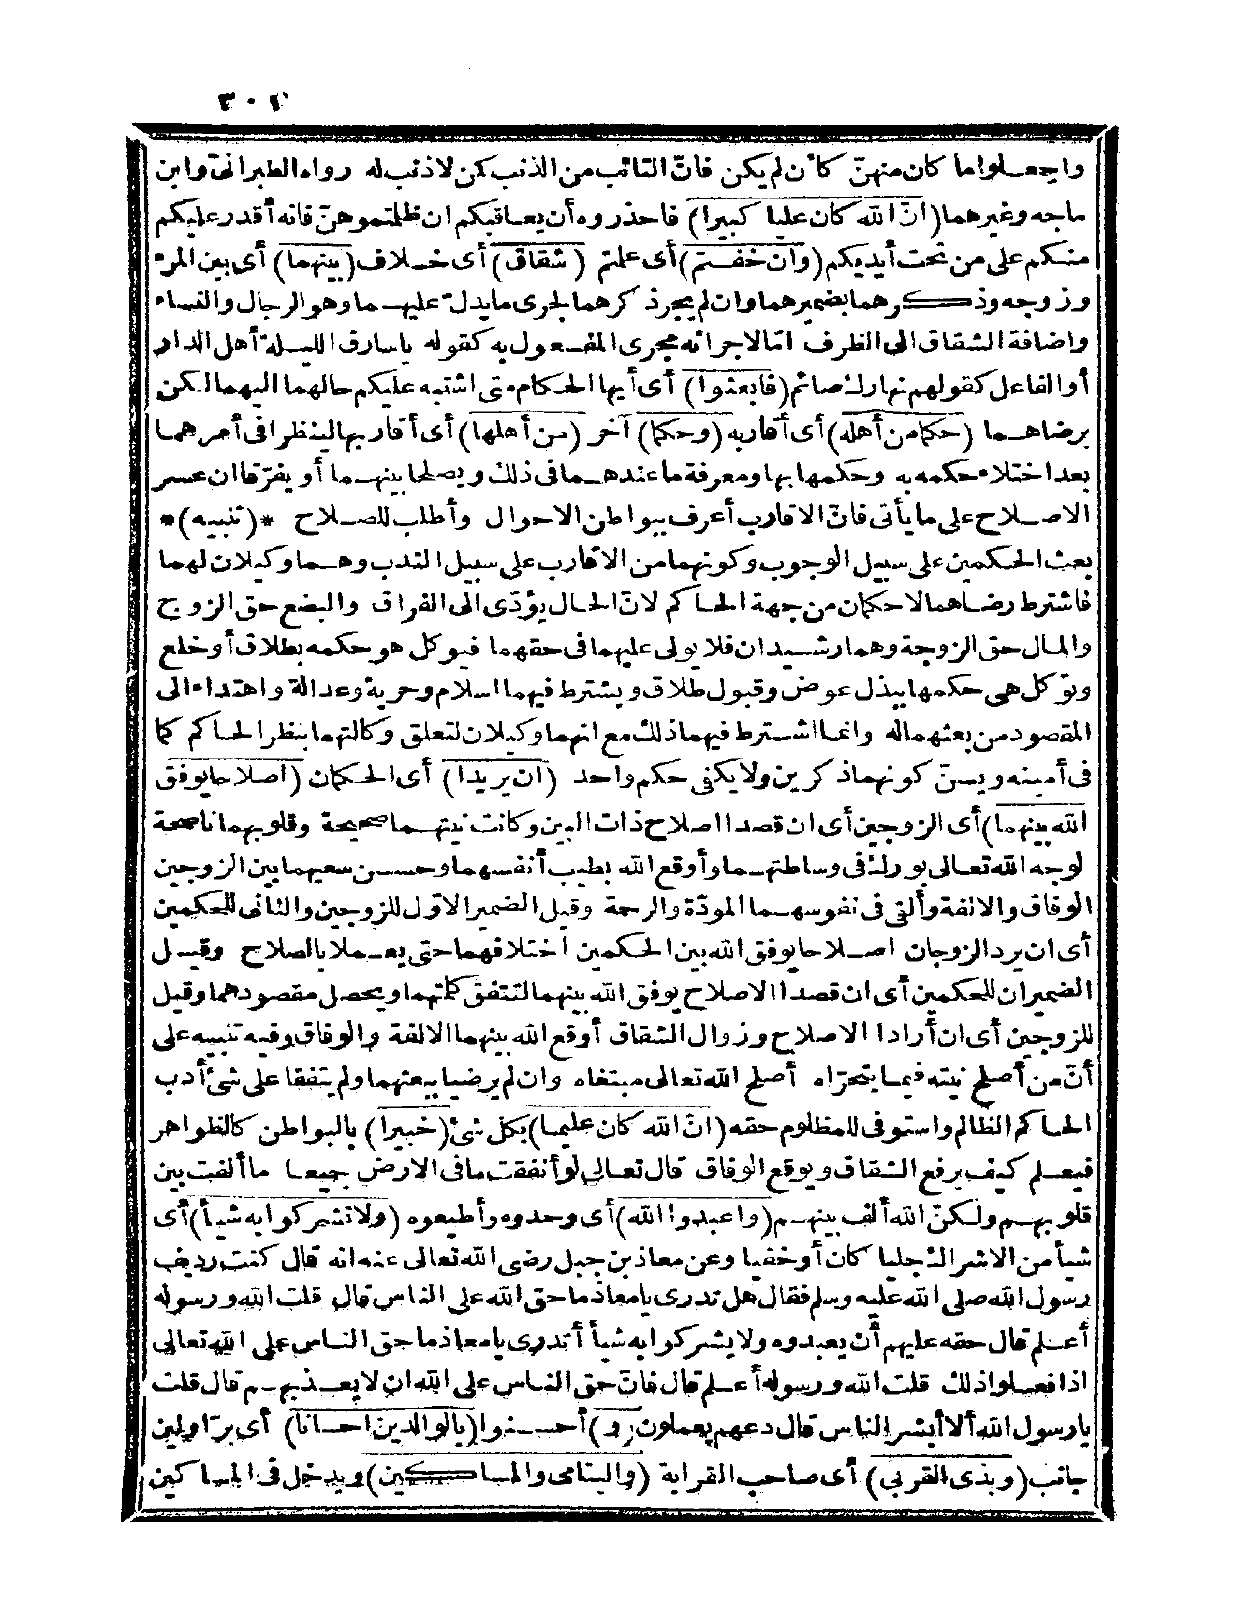 ٣٠٢
واجعلوا ما كان منهنّ كأن لم يكن فانّ التائب من الذنب كمن لا ذنب له رواه الطبرانىّ وابن
ماجه وغيرهما (انّ الله كان عليا كبيرا) فاحذروه أن يعاقبكم ان ظلمتموهنّ فانه أقدر عليكم
منكم على من تحت أيديكم (وان خفتم) أى علمتم (شقاق) أى خلاف (بينهما) أى بين المرء
وزوجه وذكرهما بضميرهما وان لم يجر ذكرهما لجرى ما يدلّ عليهما وهو الرجال والنساء
واضافة الشقاق الى الظرف امّا لاجرائه مجرى المفعول به كقوله يا سارق الليلة أهل الدار
أو الفاعل كقولهم نهارك صائم (فابعثوا) أى أيها الحكام متى اشتبه عليكم حالهما اليهما لكن
برضاهما (حكما من أهله) أى أقاربه (وحكما) آخر (من أهلها) أى أقاربها لينظر فى أمرهما
بعد اختلاء حكمه به وحكمها بها ومعرفة ما عندهما فى ذلك ويصلحا بينهما أو يفرّقا ان عسر
الاصلاح على ما يأتى فانّ الاقارب أعرف ببواطن الاحوال وأطلب للصلاح *(تنبيه)*
بعث الحكمين على سبيل الوجوب وكونهما من الاقارب على سبيل الندب وهما وكيلان لهما
فاشترط رضاهما لا حكمان من جهة الحاكم لانّ الحال يؤدّى الى الفراق والبضع حق الزوج
والمال حق الزوجة وهما رشيدان فلا يولى عليهما فى حقهما فيوكل هو حكمه بطلاق أو خلع
وتوكل هى حكمها ببذل عوض وقبول طلاق ويشترط فيهما اسلام وحرية وعدالة واهتداء الى
المقصود من بعثهما له وانما اشترط فيهما ذلك مع انهما وكيلان لتعلق وكالتهما بنظر الحاكم كما
فى أمينه ويسنّ كونهما ذكرين ولا يكفى حكم واحد (ان يريدا) أى الحكمان (اصلاحا يوفق
الله بينهما) أى الزوجين أى ان قصدا اصلاح ذات البين وكانت نيتهما صحيحة وقلوبهما ناصحة
لوجه الله تعالى بورك فى وساطتهما وأوقع الله بطيب أنفسهما وحسن سعيهما بين الزوجين
الوفاق والالفة وألقى فى نفوسهما المودّة والرحمة وقيل الضمير الاوّل للزوجين والثانى للحكمين
أى ان يرد الزوجان اصلاحا يوفق الله بين الحكمين اختلافهما حتى يعملا بالصلاح وقيل
الضميران للحكمين أى ان قصدا الاصلاح يوفق الله بينهما لتتفق كلمتهما ويحصل مقصودهما وقيل
للزوجين أى ان أرادا الاصلاح وزوال الشقاق أوقع الله بينهما الالفة والوفاق وفيه تنبيه على
أنّ من أصلح نيته فيما يتحرّاه أصلح الله تعالى مبتغاه وان لم يرضيا ببعثهما ولم يتفقا على شئ أدب
الحاكم الظالم واستوفى للمظلوم حقه (انّ الله كان عليما) بكل شئ (خبيرا) بالبواطن كالظواهر
فيعلم كيف يرفع الشقاق ويوقع الوفاق قال تعالى لو أنفقت ما فى الارض جميعا ما ألفت بين
قلوبهم ولكنّ الله ألف بينهم (واعبدوا الله) أى وحدوه وأطيعوه (ولا تشركوا به شيأ) أى
شيأ من الاشراك جليا كان أو خفيا وعن معاذ بن جبل رضى الله تعالى عنه انه قال كنت رديف
رسول الله صلى الله عليه وسلم فقال هل تدرى يا معاذ ما حق الله على الناس قال قلت الله ورسوله
أعلم قال حقه عليهم أن يعبدوه ولا يشركوا به شيأ أتدرى يا معاذ ما حق الناس على الله تعالى
اذا فعلوا ذلك قلت الله ورسوله أعلم قال فانّ حق الناس على الله ان لا يعذبهم قال قلت
يا رسول الله ألا أبشر الناس قال دعهم يعملون (و) أحسنوا (بالوالدين احسانا) أى برّا ولين
جانب (وبذى القربى) أى صاحب القرابة (واليتامى والمساكين) ويدخل فى المساكين